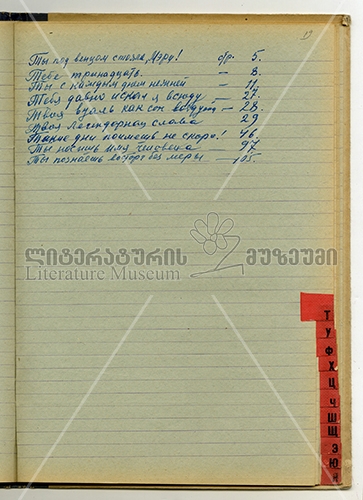 19
Ты под венцом стояла, Мэри! стр. 5.
Тебе тринадцать. — 8.
Ты с каждым днем нежней — 11.
Тебя давно искал я всюду — 27.
Твоя вуаль как сон — 28.
Твоя легендарная слава 29
Такие дни поймешь не скоро! 46.
Ты носишь имя человека — 97
Ты познаешь восторг без меры — 105.
ლიტერატურის მუზეუმი
Literature Museum
Т
У
Ф
Х
Ц
Ч
Ш
Щ
Э
Ю
Я